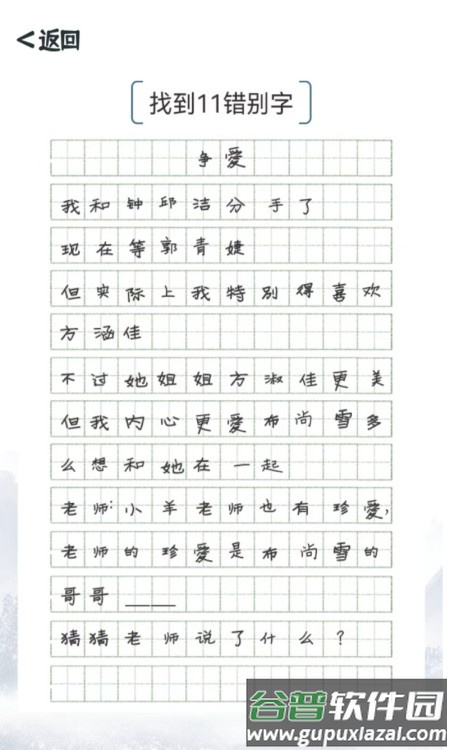 <返回
找到11错别字
争爱
我和钟邱洁分手了
现在等郭青婕
但实际上我特别得喜欢
方涵佳
不过她姐姐方淑佳更美
但我内心更爱布尚雪多
么想和她在一起
老师:小羊老师也有珍爱,
老师的珍爱是布尚雪的
哥哥____
猜猜老师说了什么?
谷普软件园
www.gupuxlazal.com